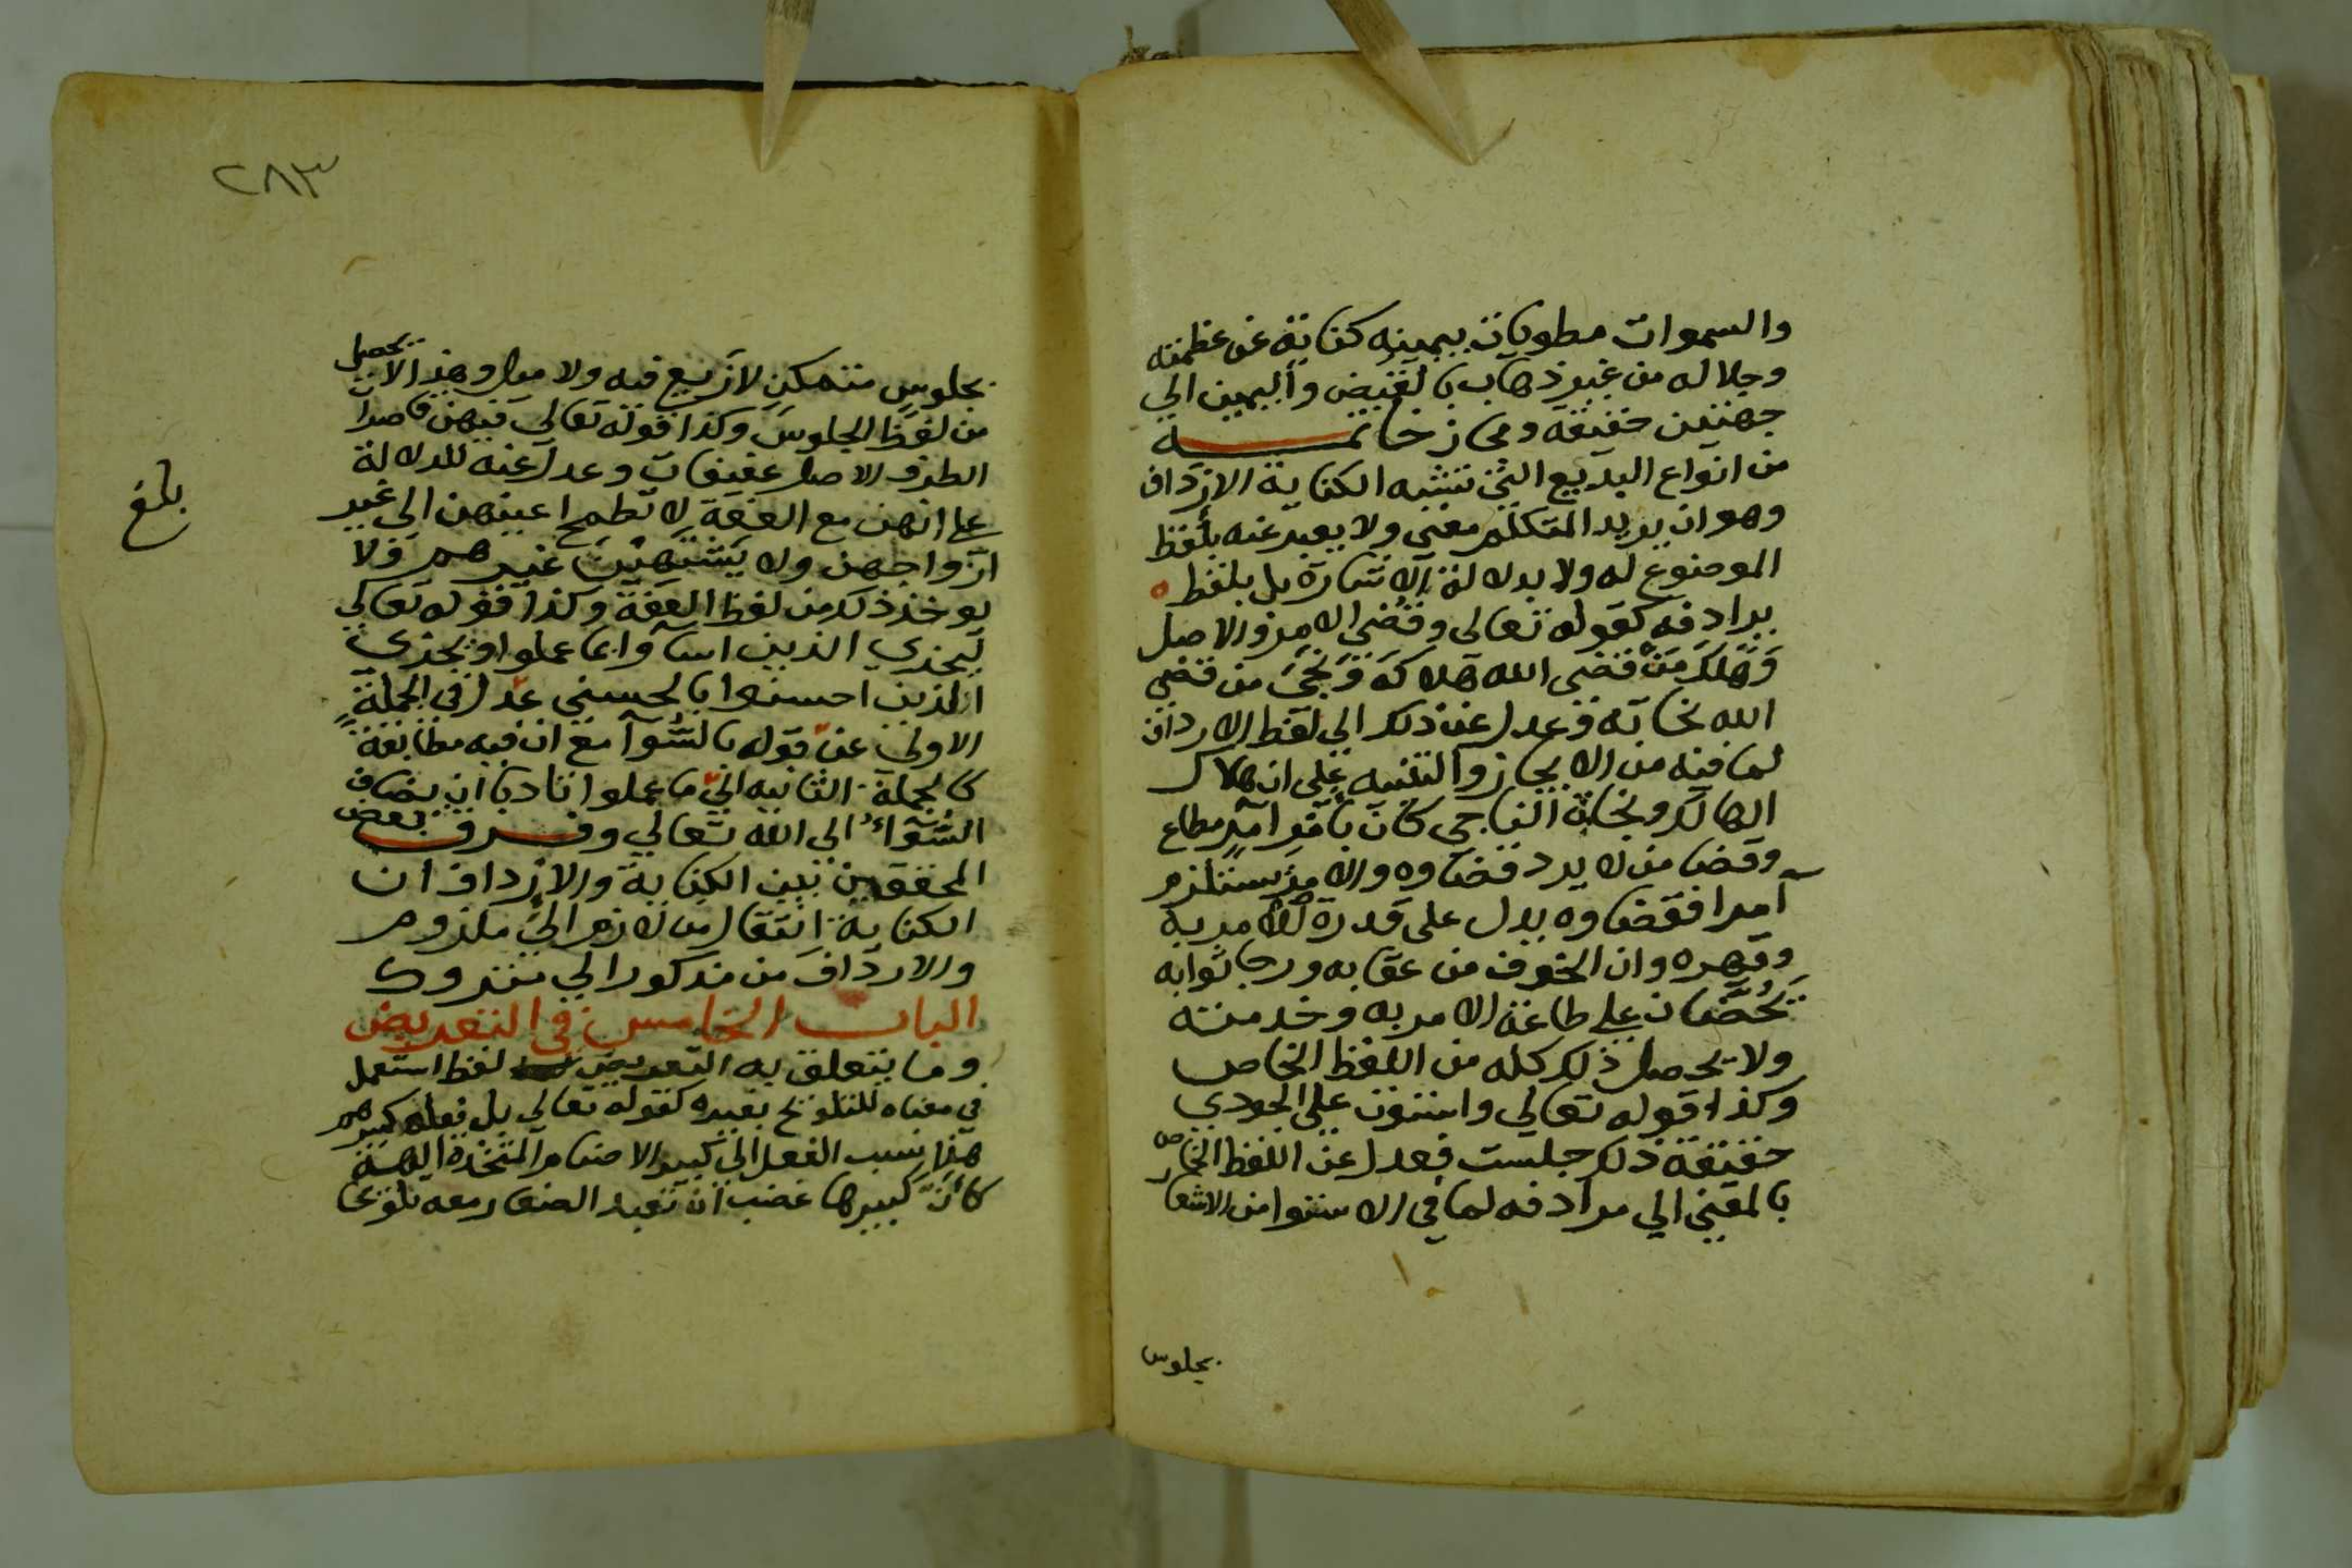 والسموات مطويات بيمينه كناية عن عظمته
وجلاله من غير ذهاب بالقبض واليمين الي
جهتين حقيقة ومجاز خاتمـــــــة
من انواع البديع التي تشبه الكناية الارداف
وهو ان يريد المتكلم معني ولا يعبر عنه بلفظ
الموضوع له ولا بدلالة الاشارة بل بلفظ
يرادفه كقوله تعالى وقضي الامر والاصل
وهلك من قضي الله هلاكه ونجي من قضي
الله نجاته وعدل عن ذلك الي لفظ الارداف
لما فيه من الايجاز والتنبيه علي ان هلاك
الهالك ونجاة الناجي كان بامر آمر مطاع
وقضا من لا يرد قضاوه والامر يستلزم
آمرا فقضاوه يدل علي قدرة الامر به
وقهره وان الخوف من عقابه ورجا ثوابه
يحضان علي طاعة الامر به وخدمته
ولا يحصل ذلك كله من اللفظ الخاص
وكذا قوله تعالي واستوت علي الجودي
حقيقة ذلك جلست فعدل عن اللفظ الخاص
بالمعني الي مرادفه لما في الاستوا من الاشعار
بجلوس
٢٨٣
بجلوس متمكن لا زيغ فيه ولا ميل وهذا لا يحصل
من لفظ الجلوس وكذا قوله تعالي فيهن قاصرات
الطرف الاصل عفيفات وعدل عنه للدلالة
علي انهن مع العفة لا تطمح اعينهن الي غير
ازواجهن ولا يشتهين غيرهم ولا
يوخذ ذلك من لفظ العفة وكذا قوله تعالي
ليجزي الذين اساوا بما عملوا ويجزي
الذين احسنوا بالحسني عدل في الجملة
الاولي عن قوله بالسوآ مع ان فيه مطابقة
كالجملة الثانيه الي ما عملوا تادبا ان يضاف
السوآء الي الله تعالي وفـــرق بعض
المحققين بين الكناية والارداف ان
الكناية انتقال من لازم الي ملزوم
والارداف من مذكور الي متروك
البــاب الخامس في التعريض
وما يتعلق به التعريض لفظ استعمل
في معناه للتلويح بغيره كقوله تعالي بل فعله كبيرهم
هذا نسب الفعل الي كبير الاصنام المتخذة الهة
كأنّ كبيرها غضب ان تعبد الصغار معه تلويحا
بلغ